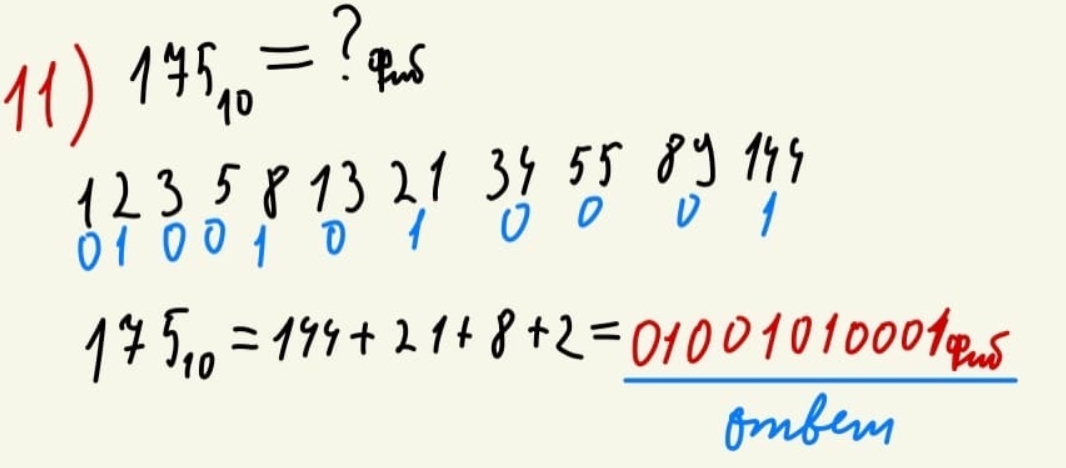 11) 175₁₀ = ?фиб
1 2 3 5 8 13 21 34 55 89 144
0 1 0 0 1 0 1 0 0 0 1
175₁₀ = 144 + 21 + 8 + 2 = 01001010001фиб
ответ